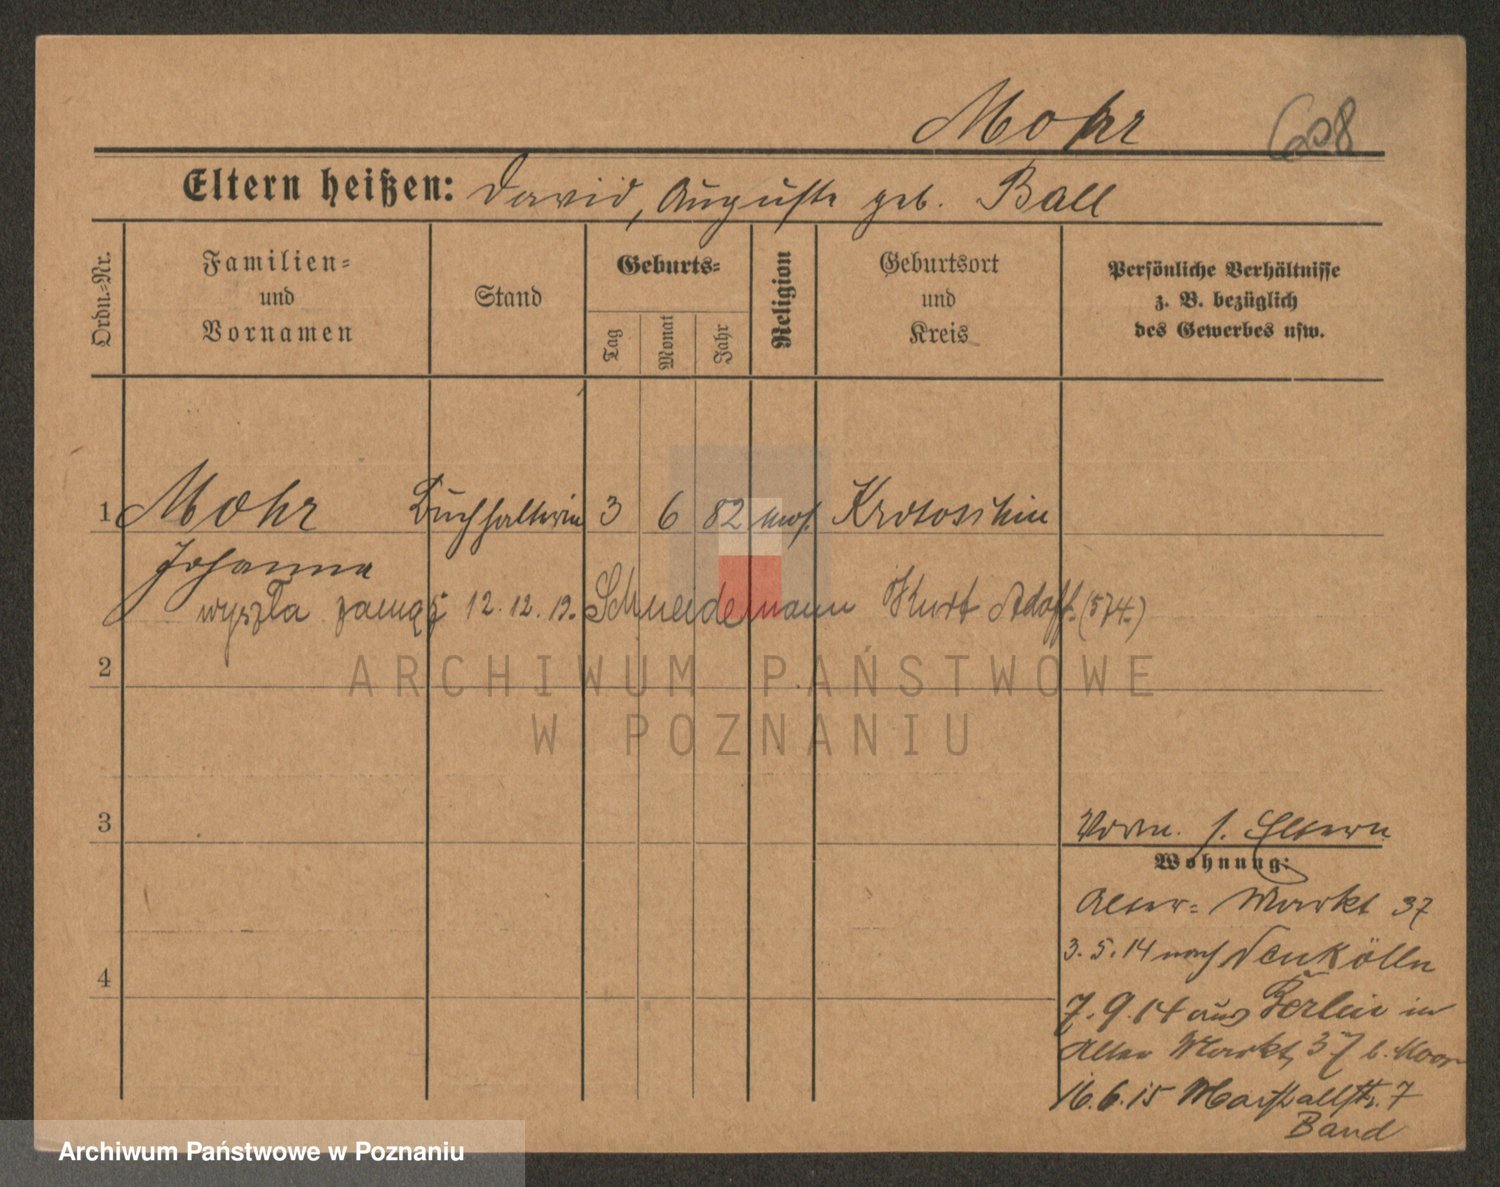 Mohr 608
Eltern heißen: David, Auguste geb. Ball
Ordn.-Nr.
Familien-
und
Vornamen
Stand
Geburts-
Tag
Monat
Jahr
Religion
Geburtsort
und
Kreis
Persönliche Verhältnisse
z. B. bezüglich
des Gewerbes usw.
1 Mohr Buchhalterin 3 6 82 mos. Krotoschin
Johanna
wyszła zamąż 12.12.19. Schneidemann Kurt Adolf. (574.)
2
3
4
Vorm. s. Eltern
Wohnung:
Alter- Markt 37
3.5.14 nach Neukölln
7.9.14 aus Berlin in
Alter Markt 37 b.
16.6.15 Marstallstr. 7
Band
ARCHIWUM PAŃSTWOWE
W POZNANIU
Archiwum Państwowe w Poznaniu